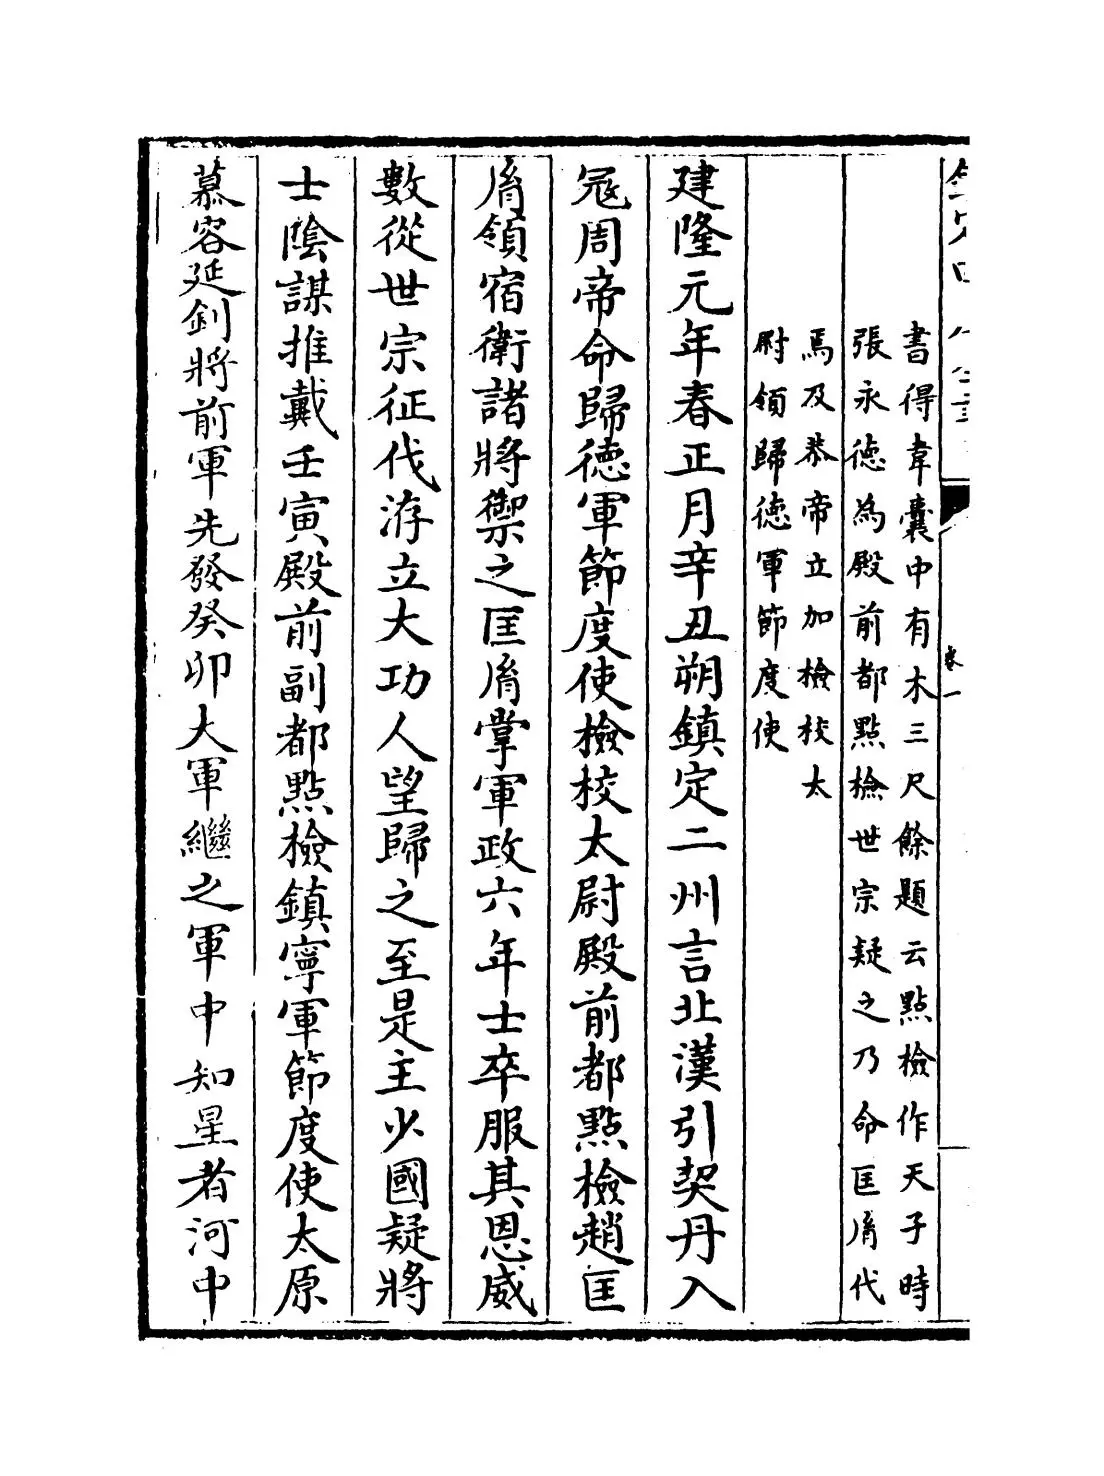 卷一
書得韋囊中有木三尺餘題云點檢作天子時
張永德為殿前都點檢世宗疑之乃命匡胤代
焉及恭帝立加檢校太
尉領歸徳軍節度使
建隆元年春正月辛丑朔鎮定二州言北漢引契丹入
冦周帝命歸徳軍節度使檢校太尉殿前都點檢趙匡
胤領宿衛諸將禦之匡胤掌軍政六年士卒服其恩威
數從世宗征伐洊立大功人望歸之至是主少國疑將
士陰謀推戴壬寅殿前副都點檢鎮寧軍節度使太原
慕容延釗將前軍先發癸卯大軍繼之軍中知星者河中